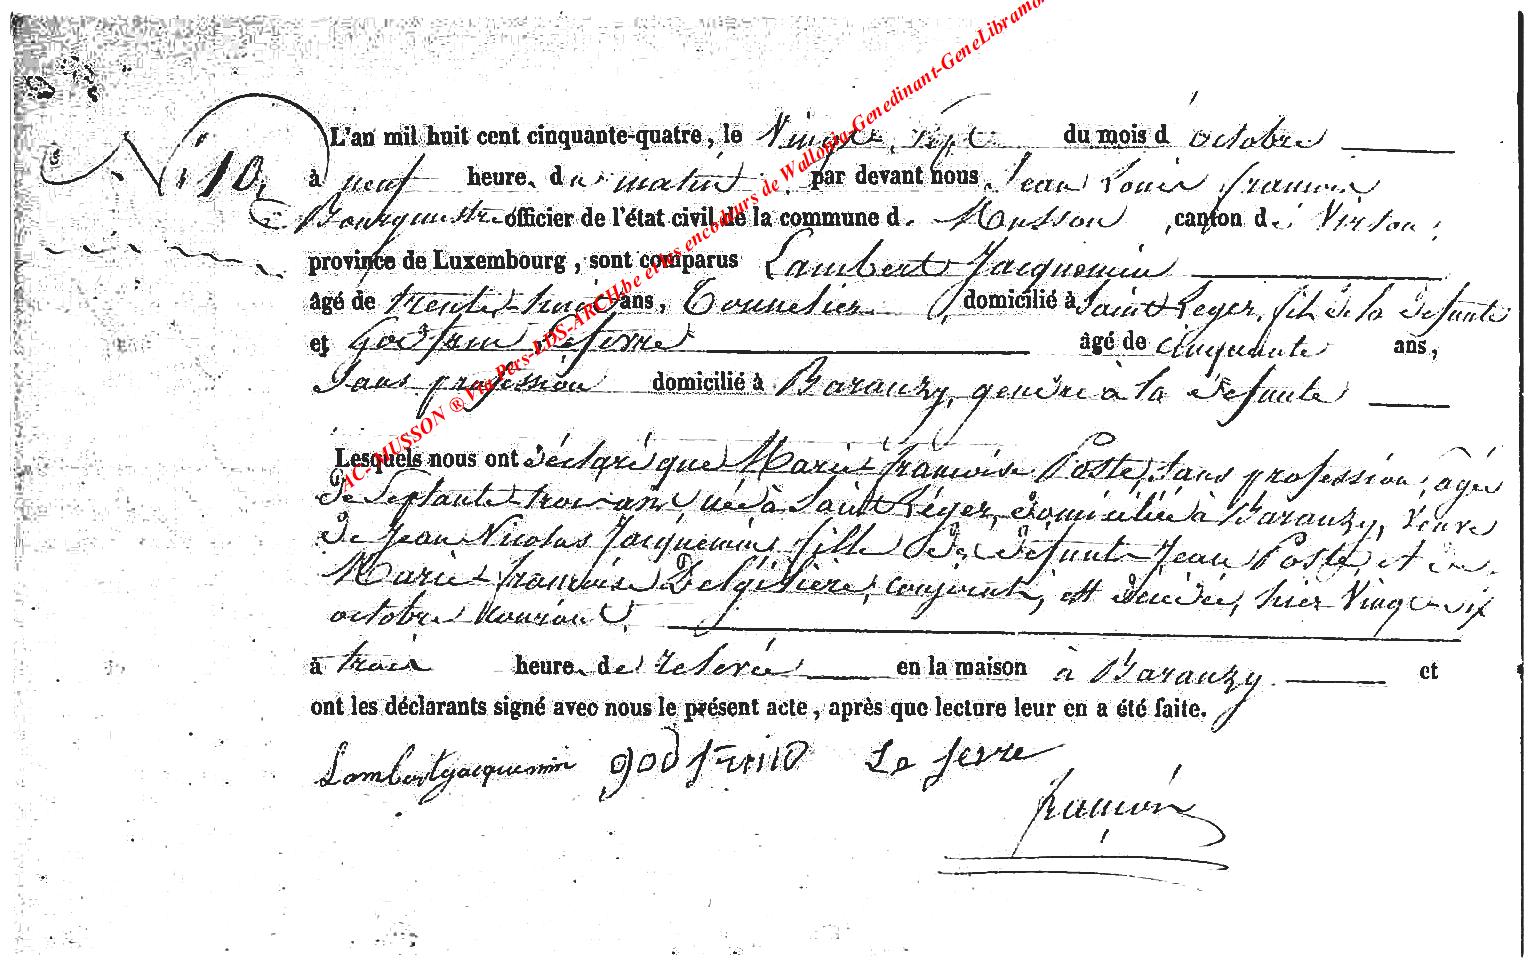 N° 10.
L'an mil huit cent cinquante-quatre, le Vingt Sept du mois d'octobre
à neuf heure. du matin par devant nous Jean Louis françois
Bourgmestre officier de l'état civil de la commune d. Musson, canton de Virton,
province de Luxembourg, sont comparus Lambert Jacquemin
âgé de trente-huit ans, Tonnelier domicilié à Saint Leger, fils de la defunte
et Godfrin Lefevre âgé de cinquante ans,
Sans profession domicilié à Baranzy, gendre à la defunte
Lesquels nous ont déclaré que Marie-françoise Poste, Sans profession, agée
de Septante-trois ans, née à Saint Léger, domiciliée à Baranzy, veuve
de Jean Nicolas Jacquemin, fille de defunts Jean Poste, et de
Marie-françoise, conjoints, est décédée, hier Vingt-six
octobre courant,
à trois heure. de relevée en la maison à Baranzy et
ont les déclarants signé avec nous le présent acte, après que lecture leur en a été faite.
Lambert jacquemin godfrin Le fevre
françois
AC-MUSSON ® Via Pers-LDS-ARCH.be et les encodeurs de Wallonia-Genedinant-GeneLibramo